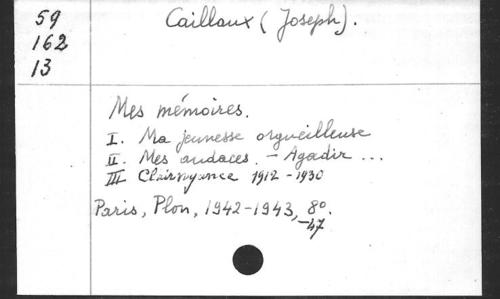 59
162
13
Caillaux (Joseph).
Mes mémoires.
I. Ma jeunesse orgueilleuse
II. Mes audaces. - Agadir ...
III Clairvoyance 1912 - 1930
Paris, Plon, 1942-1943, 8º.
-47.